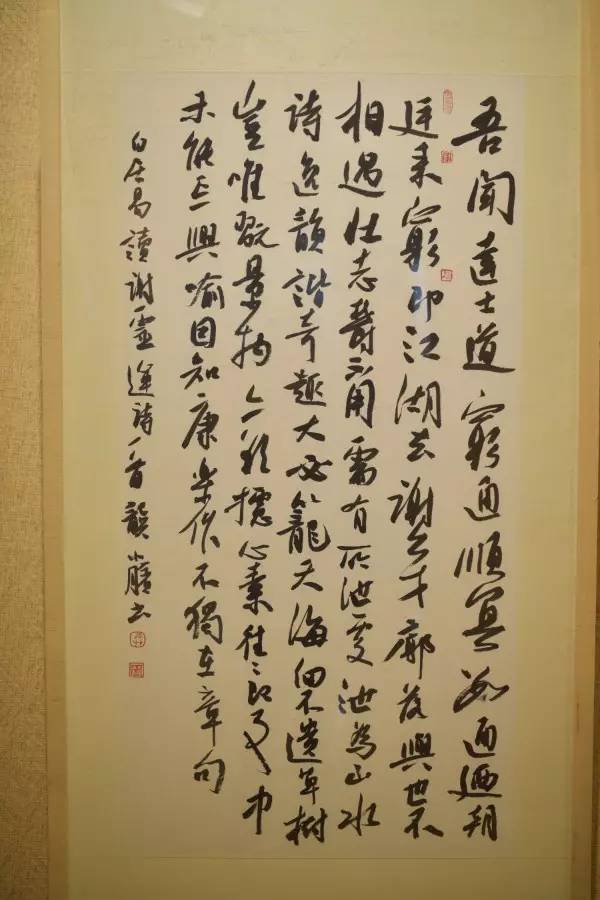 吾聞達士道窮通順冥數通迺朝
廷来窮即江湖去謝公才廓落與世不
相遇壮志鬱不用需有所泄處泄為山水
詩逸韻諧奇趣大必籠天海細不遺草樹
豈唯翫景物亦欲攄心素往〻即事中
未能忘興喻因知康樂作不獨在章句
白居易讀謝靈運詩一首龔小书